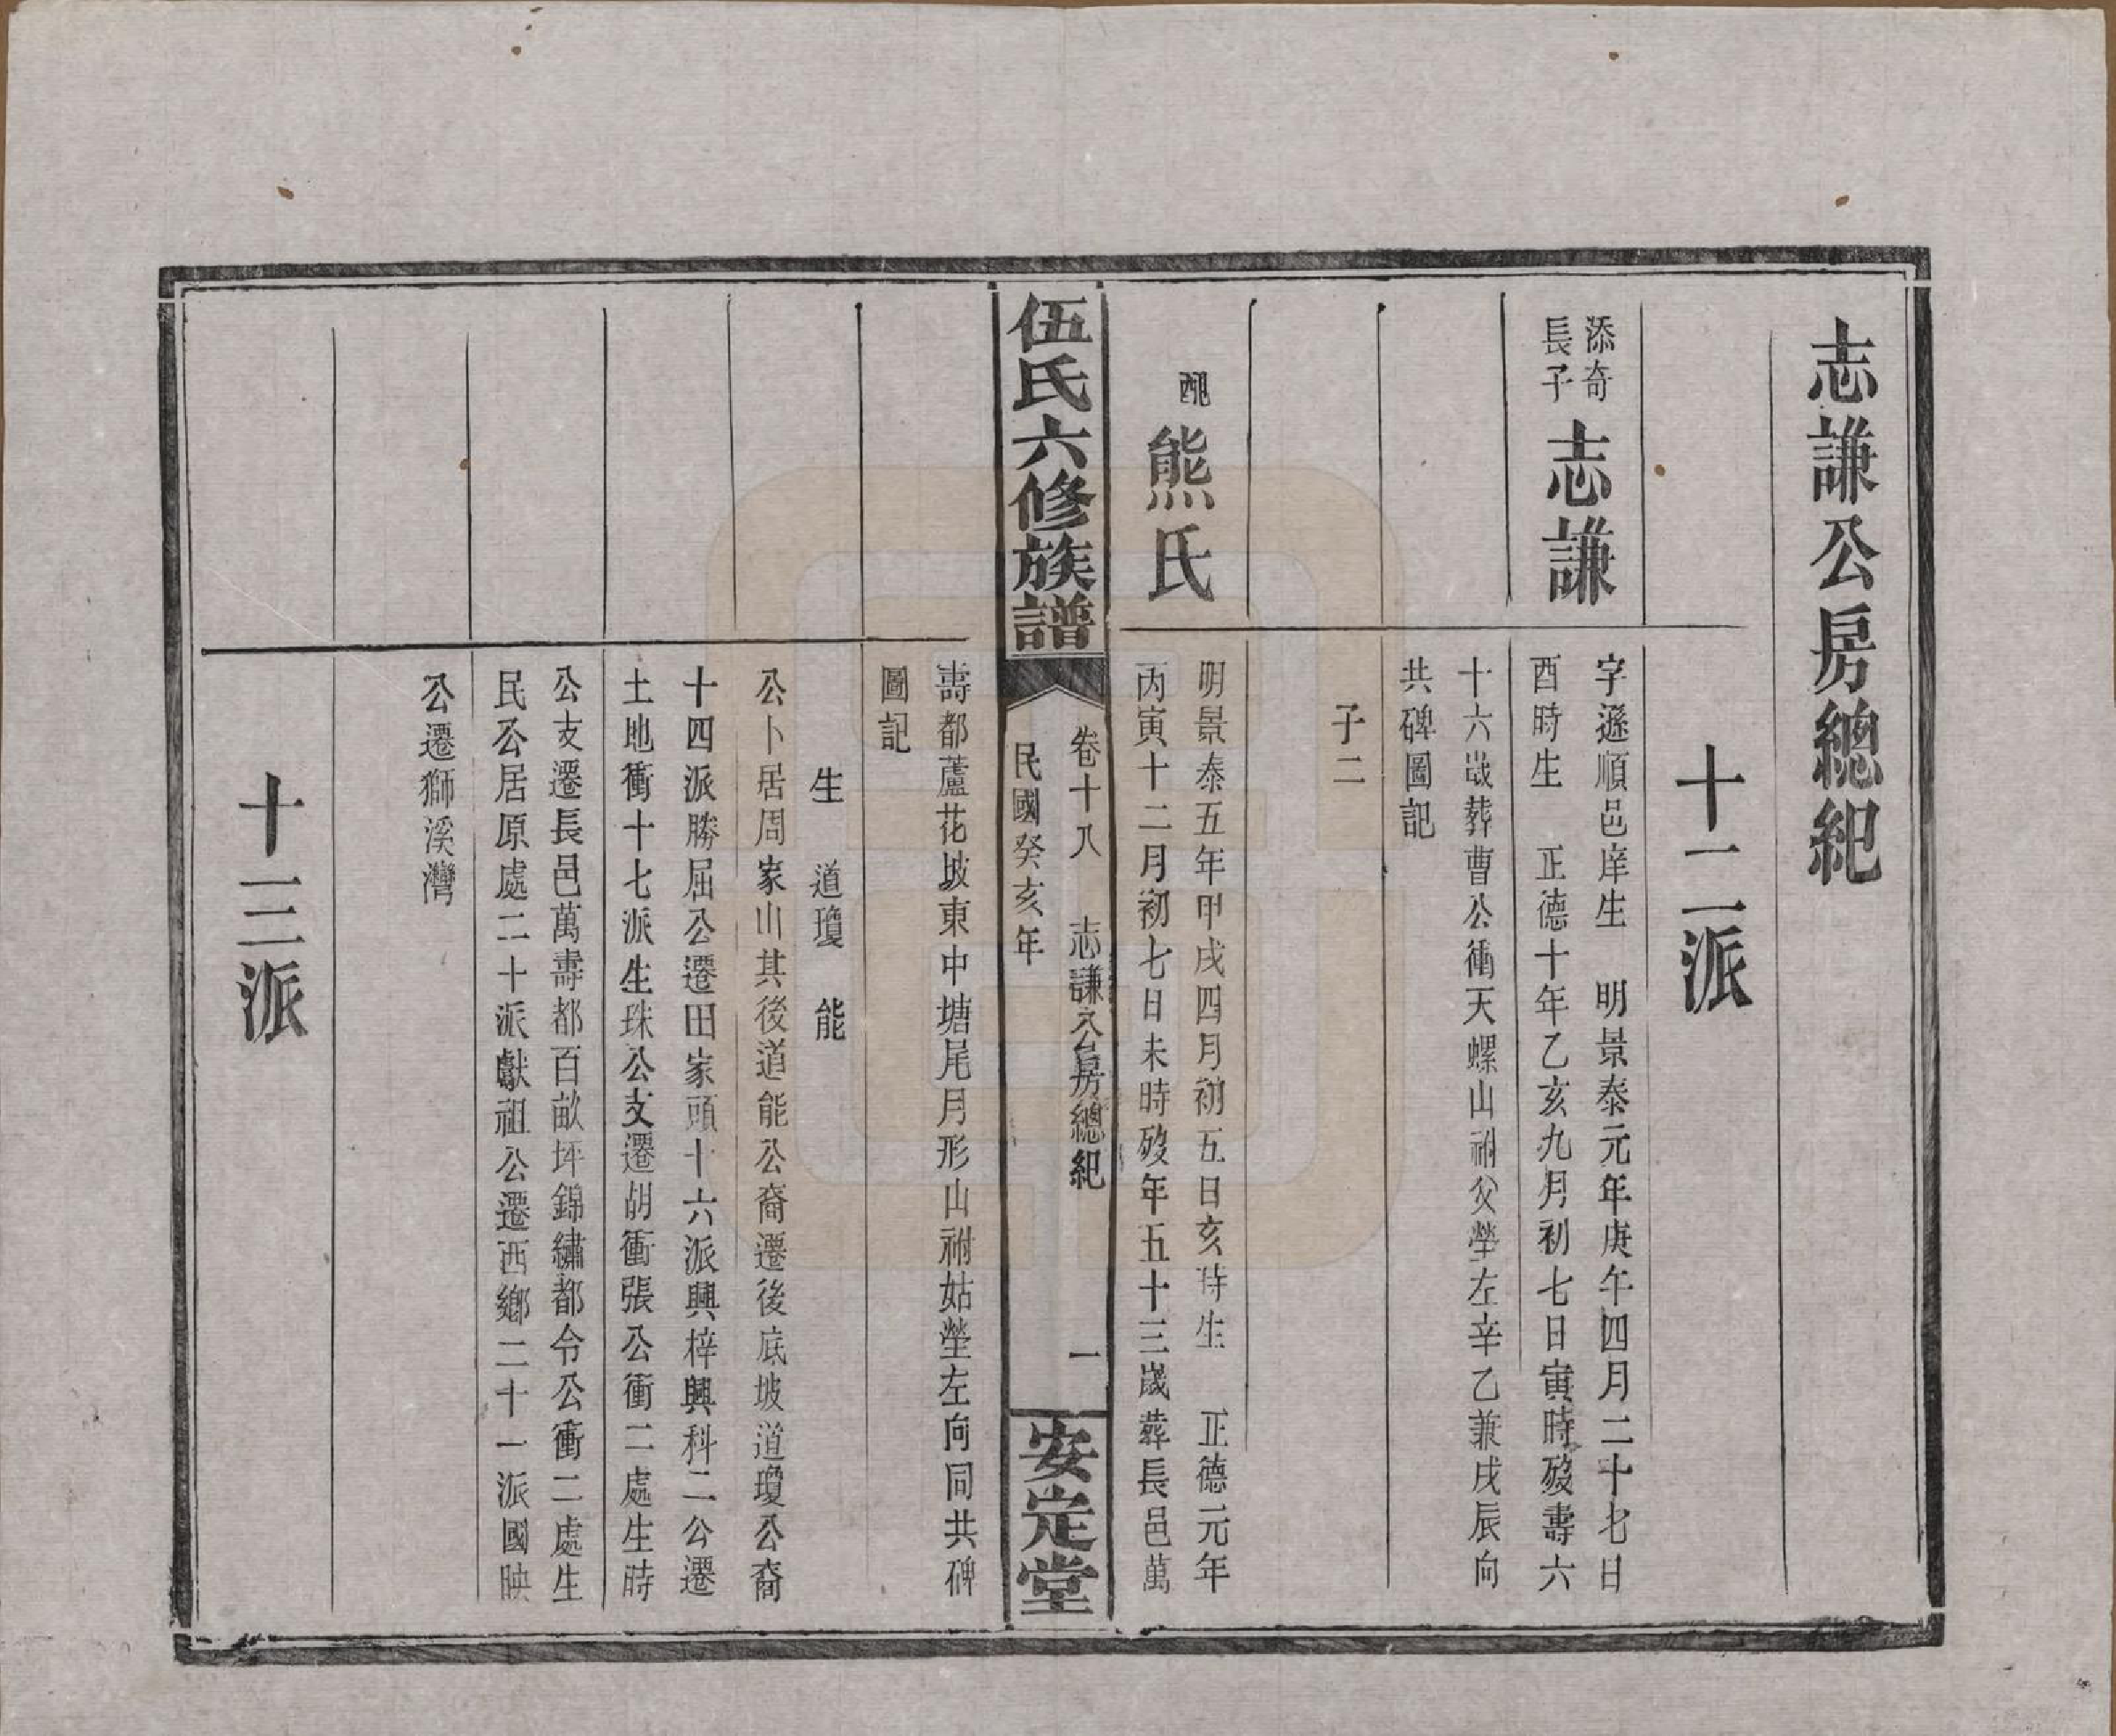 志謙公房總紀
十二派
添奇
長子
志謙
字遜順邑庠生　明景泰元年庚午四月二十七日
酉時生　正德十年乙亥九月初七日寅時歿壽六
十六歲葬曹公衝天螺山祔父塋左辛乙兼戌辰向
共碑圖記
子二
配熊氏
明景泰五年甲戌四月初五日亥時生　正德元年
丙寅十二月初七日未時歿年五十三歲葬長邑萬
伍氏六修族譜
卷十八　志謙公房總紀　一
民國癸亥年
安定堂
壽都蘆花坡東中塘尾月形山祔姑塋左向同共碑
圖記
生　道瓊　能
公卜居周家山其後道能公裔遷後底坡道瓊公裔
十四派勝屈公遷田家頭十六派興梓興科二公遷
土地衝十七派生珠公支遷胡衝張公衝二處生時
公支遷長邑萬壽都百畝坪錦繡都令公衝二處生
民公居原處二十派獻祖公遷西鄉二十一派國映
公遷獅溪灣
十三派